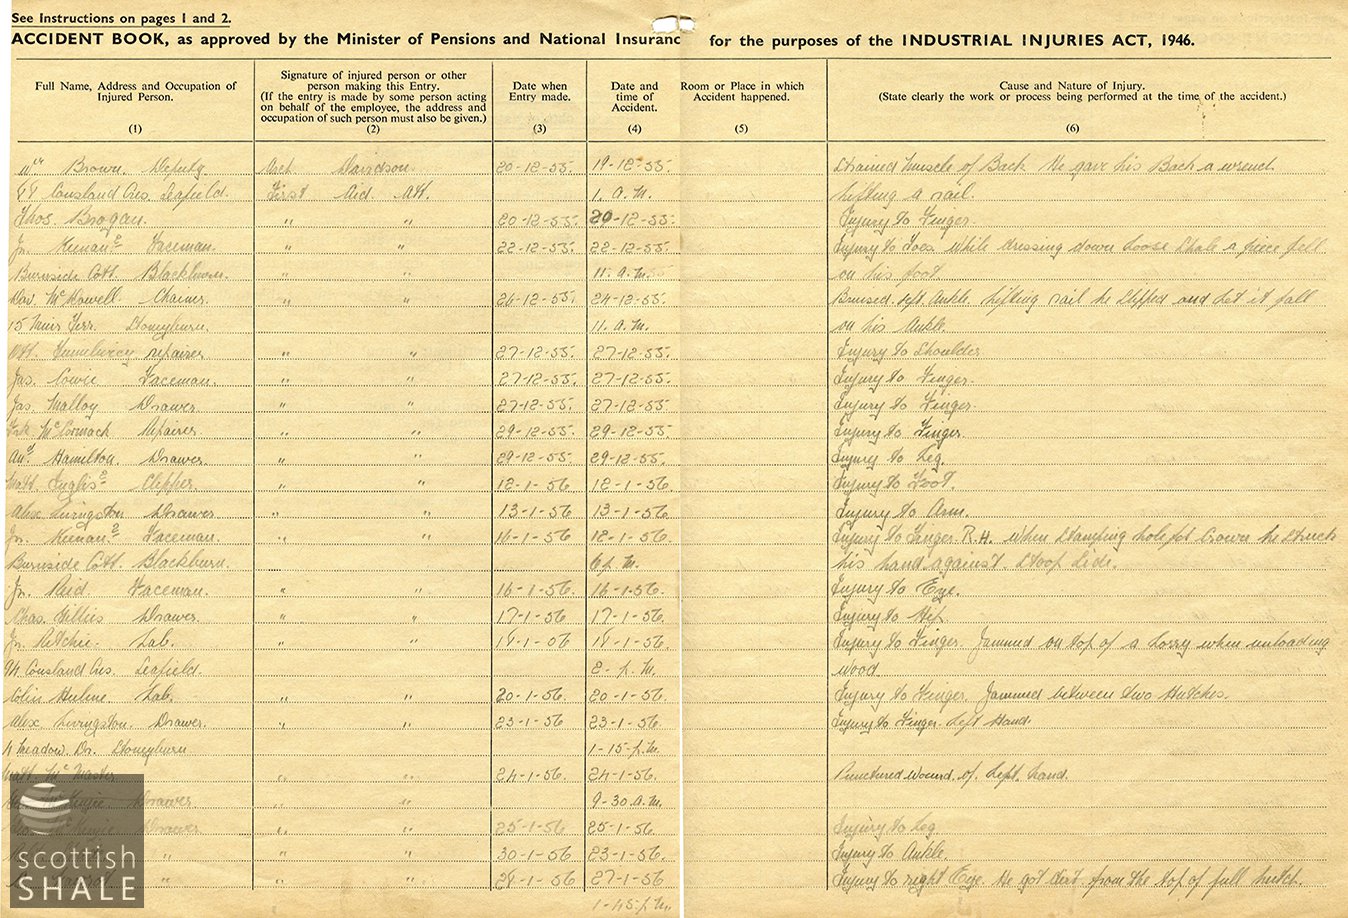 See Instructions on pages 1 and 2.
ACCIDENT BOOK, as approved by the Minister of Pensions and National Insuranc for the purposes of the INDUSTRIAL INJURIES ACT, 1946.
Full Name, Address and Occupation of Injured Person. (1)
Signature of injured person or other person making this Entry. (If the entry is made by some person acting on behalf of the employee, the address and occupation of such person must also be given.) (2)
Date when Entry made. (3)
Date and time of Accident. (4)
Room or Place in which Accident happened. (5)
Cause and Nature of Injury. (State clearly the work or process being performed at the time of the accident.) (6)
Wm Brown. Deputy Arch Davidson 20-12-55. 19-12-55. Strained Muscle of Back He gave his Back a wrench
Cousland Cres. Seafield. First Aid Att. 1. a.m. lifting a rail.
Thos. Brogan. " " 20-12-55. 20-12-55. Injury to Finger.
Jn. Keenan 2 Faceman. " " 22-12-55. 22-12-55. Injury to Toes. While dressing down loose Shale a piece fell
Burnside Cott. Blackburn. " " 11. a.m. on his foot
Dav. McDowell. Chainer. " " 24-12-55. 24-12-55. Bruised left Ankle. Lifting rail he slipped and let it fall
15 Muir Terr. Stoneyburn. 11. a.m. on his Ankle.
repairer " " 27-12-55. 27-12-55. Injury to Shoulder
Jas. Cowie Faceman. " " 27-12-55. 27-12-55. Injury to Finger.
Jas. Malloy Drawer " " 27-12-55. 27-12-55. Injury to Finger.
McCormack Repairer " " 29-12-55. 29-12-55. Injury to Finger.
Hamilton. Drawer. " " 29-12-55. 29-12-55. Injury to Leg.
Matt. Inglis 2 Clipper. " " 12-1-56. 12-1-56. Injury to Foot.
Alex Livingston Drawer " " 13-1-56 13-1-56. Injury to Arm.
Jn. Keenan 2 Faceman. " " 16-1-56 12-1-56. Injury to Finger. R.H. When stamping hole he struck
Burnside Cott. Blackburn. 6 p.m. his hand against stoop side.
Jn. Reid Faceman. " " 16-1-56. 16-1-56. Injury to Eye.
Chas. Gillies Drawer. " " 17-1-56 17-1-56. Injury to Hip
Jn. Ritchie. Lab. " " 18-1-56 18-1-56. Injury to Finger. Jammed on top of a Lorry when unloading
94 Cousland Cres. Seafield. 2- p.m. wood
Colin Lab. " " 20-1-56. 20-1-56. Injury to Finger. Jammed between two Hutches.
Alex Livingston. Drawer. " " 23-1-56 23-1-56. Injury to Finger. Left Hand.
4 Meadow. Dr. Stoneyburn 1-15 p.m.
Matt McMaster " " 24-1-56. 24-1-56. Punctured wound of left hand.
Drawer " " 9-30 a.m.
Drawer " " 25-1-56 25-1-56. Injury to Leg.
" " " 30-1-56 23-1-56. Injury to Ankle.
" " " 28-1-56 27-1-56 Injury to right Eye. He got dirt from the top of full hutch.
1-45 p.m.
scottish
SHALE